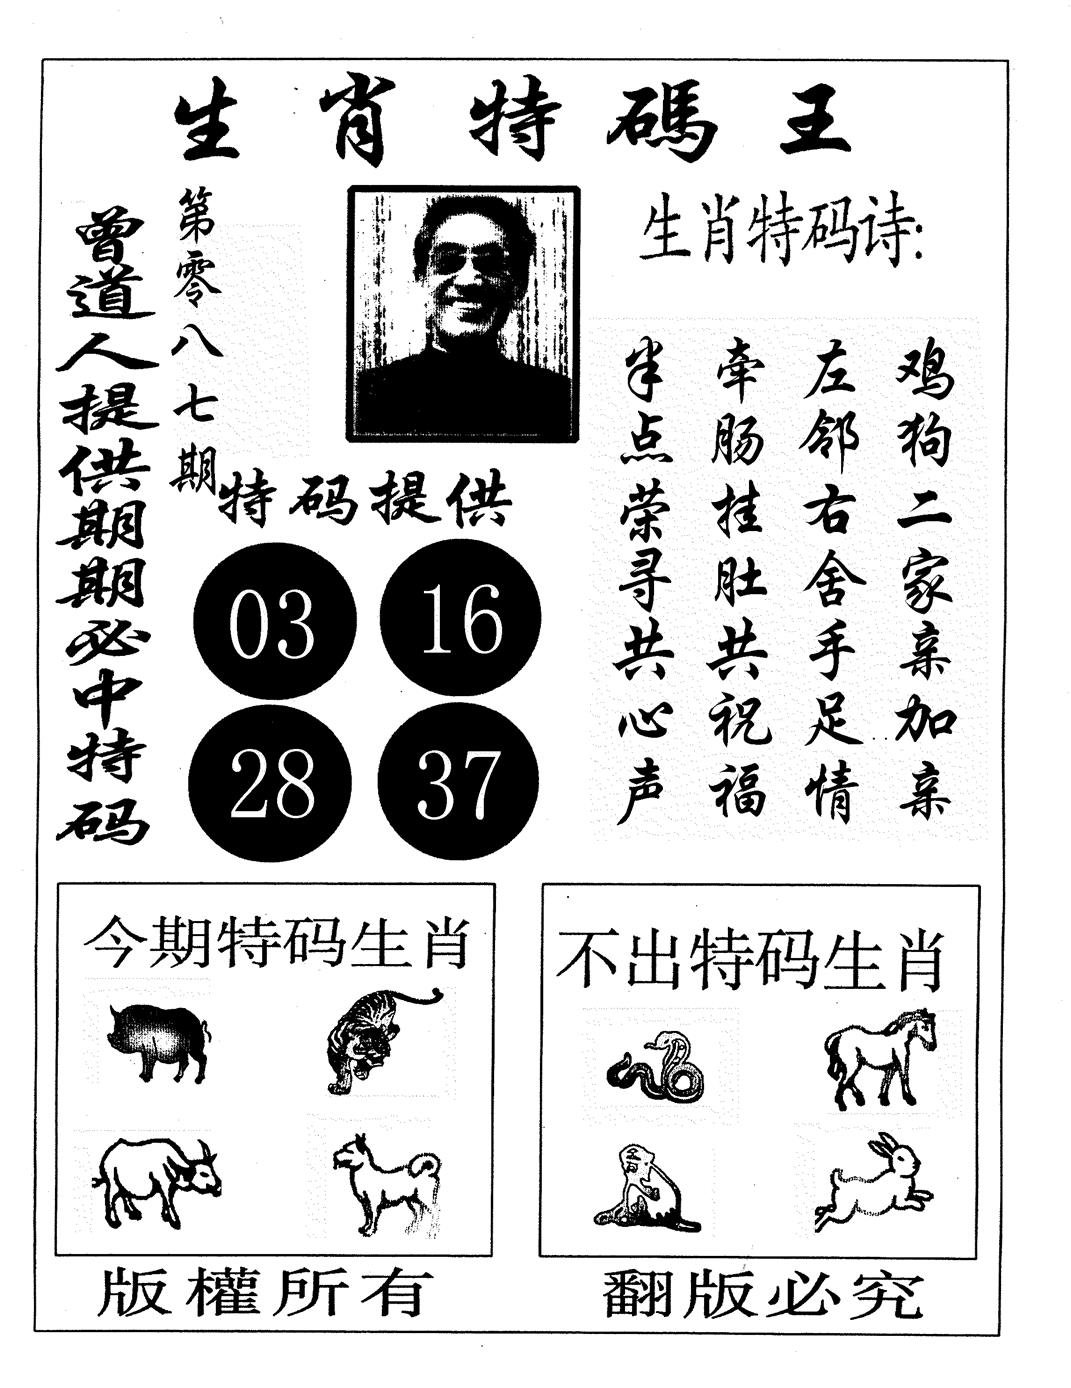 生肖特碼王
曾道人提供期期必中特码
第零八七期
特码提供
03 16
28 37
生肖特码诗:
鸡狗二家亲加亲
左邻右舍手足情
牵肠挂肚共祝福
半点荣寻共心声
今期特码生肖
不出特码生肖
版權所有
翻版必究